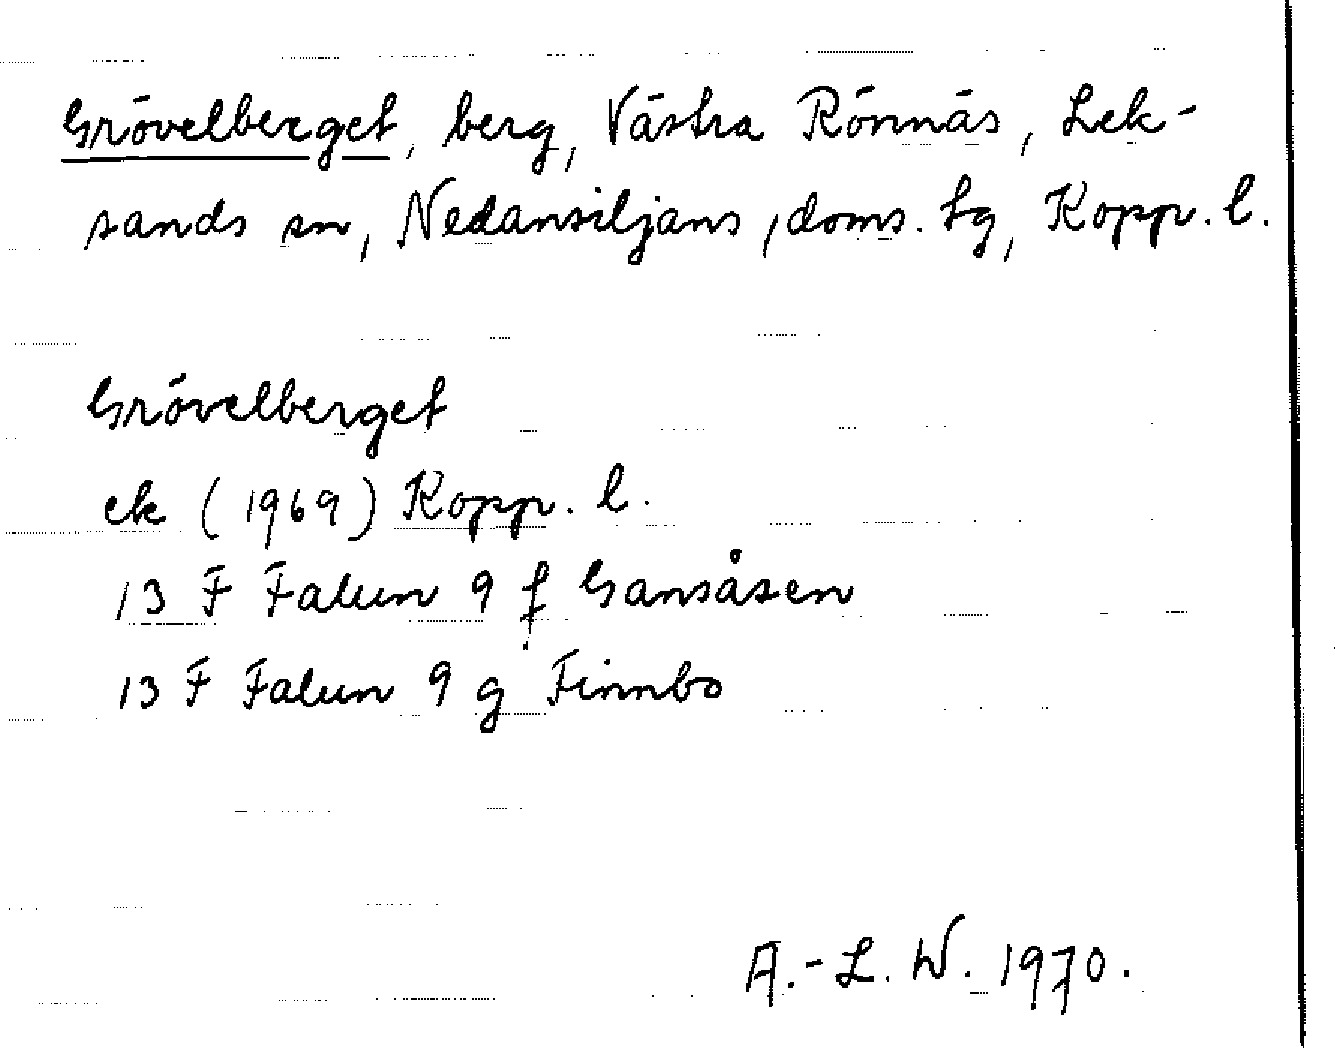 Grövelberget, berg, Västra Rönnäs, Lek-
sands sn, Nedansiljans, doms. tg, Kopp. l.
Grövelberget
ek (1969) Kopp. l.
13 F Falun 9 f Gansåsen
13 F Falun 9 g Finnbo
A.-L. W. 1970.